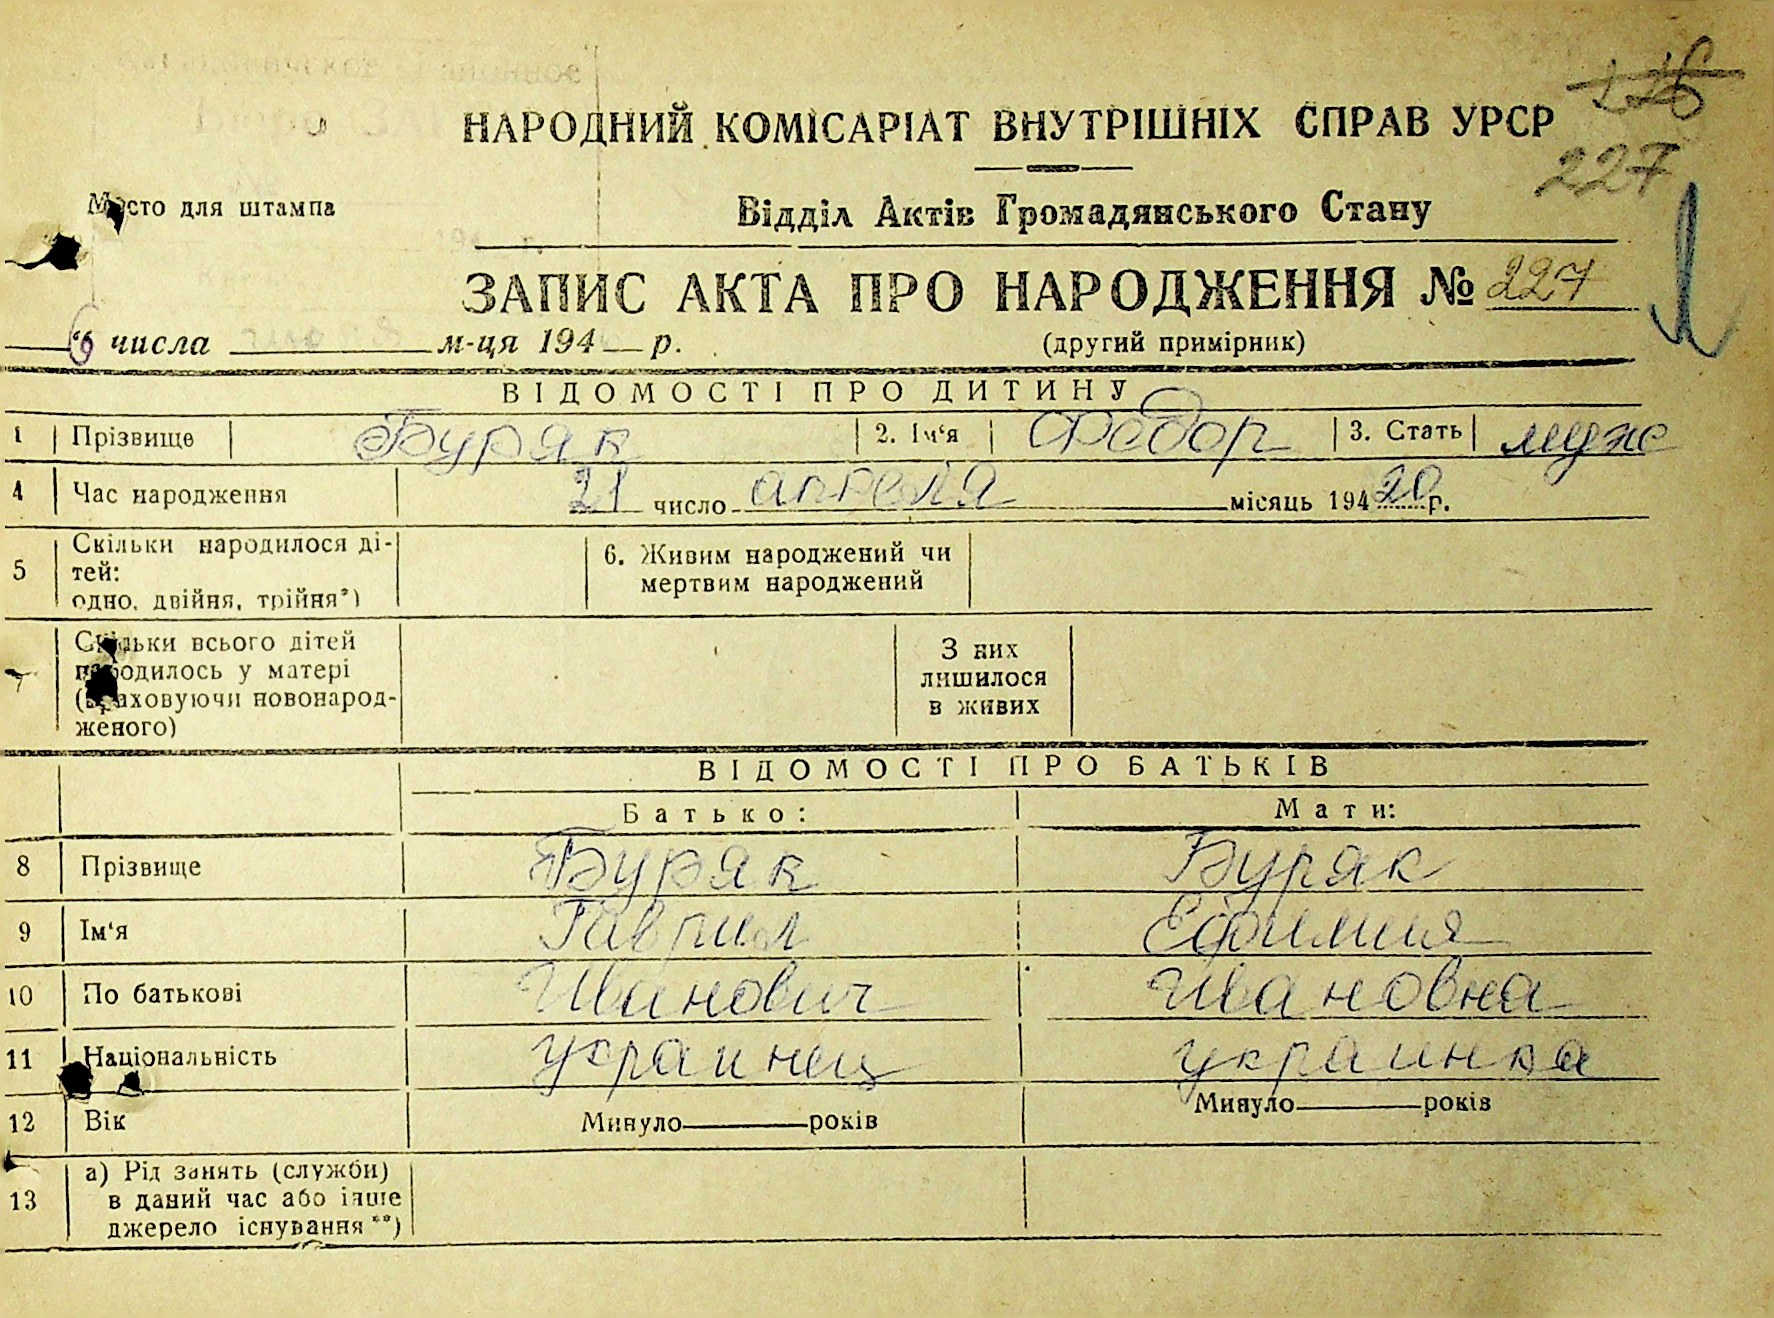 226
НАРОДНИЙ КОМІСАРІАТ ВНУТРІШНІХ СПРАВ УРСР
227
Місто для штампа
Відділ Актів Громадянського Стану
ЗАПИС АКТА ПРО НАРОДЖЕННЯ № 227
числа м-ця 194 р.
(другий примірник)
ВІДОМОСТІ ПРО ДИТИНУ
1 Прізвище Буряк 2. Ім‘я Федор 3. Стать муже
4 Час народження 21 число апреля місяць 194 20 р.
5 Скільки народилося ді-
тей:
одно, двійня, трійня*)
6. Живим народжений чи
мертвим народжений
7 Скільки всього дітей
народилось у матері
(враховуючи новонарод-
женого)
З них
лишилося
в живих
ВІДОМОСТІ ПРО БАТЬКІВ
Батько: Мати:
8 Прізвище Буряк Буряк
9 Ім‘я Гаврил Ефимия
10 По батькові Иванович Ивановна
11 Національність украинец украинка
12 Вік Минуло років Минуло років
13 а) Рід занять (служби)
в даний час або інше
джерело існування**)